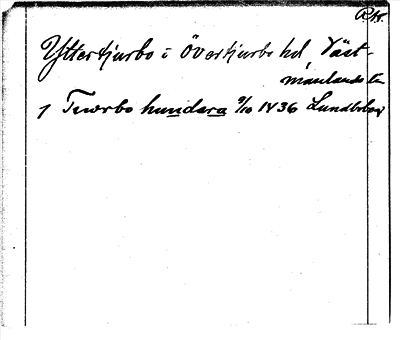 Rk.
Yttertjurbo i Övertjurbo hd Väst-
manlands län
1 Tiurbo hundara 9/10 1436 Lundbiban